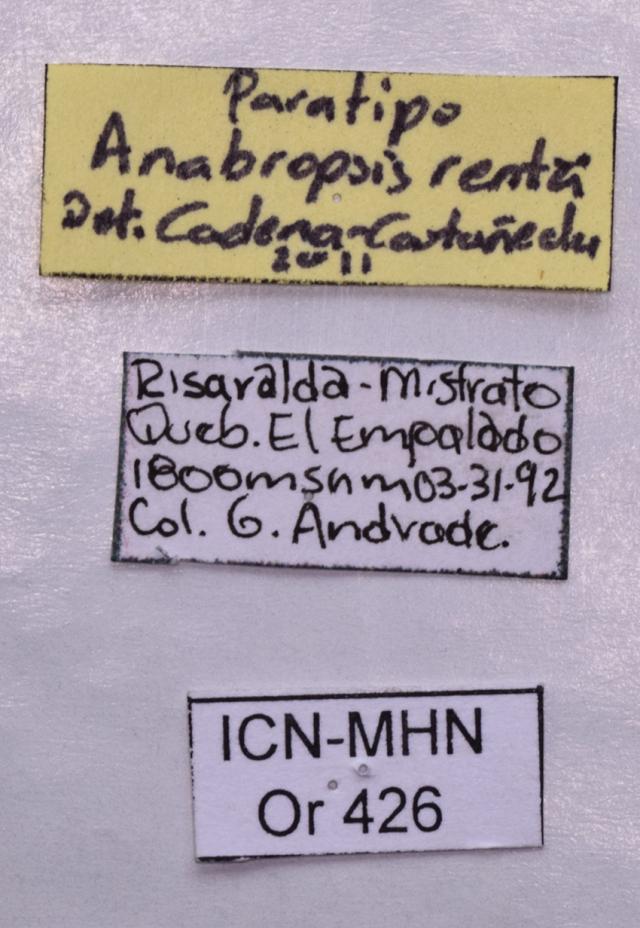 Paratipo
Anabropsis rentzi
Det. Cadena-Castañeda
2011
Risaralda-Mistrato
Queb. El Empalado
1800msnm03-31-92
Col. G. Andrade.
ICN-MHN
Or 426